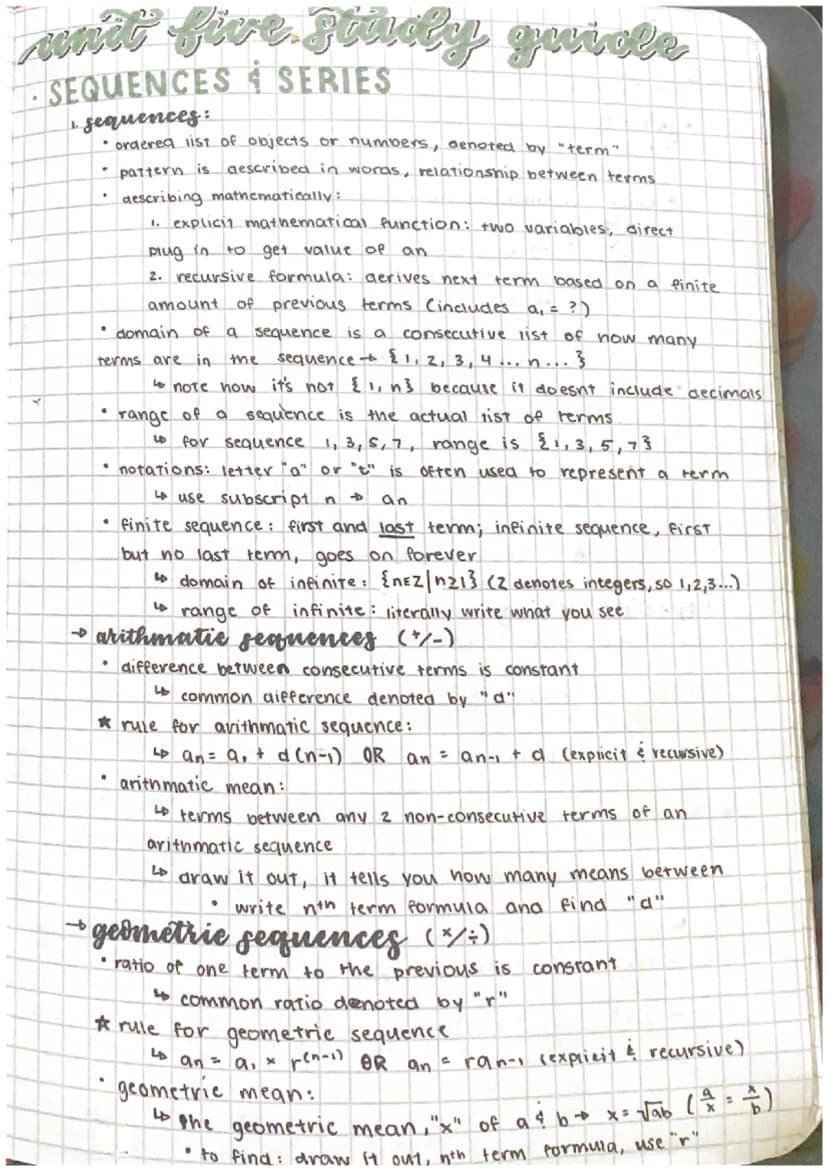 unit five study guide
· SEQUENCES & SERIES
1. sequences:
• ordered list of objects or numbers, denoted by "term"
• pattern is described in words, relationship between terms
• describing mathematically:
1. explicit mathematical function: two variables, direct
plug in to get value of an
2. recursive formula: derives next term based on a finite
amount of previous terms (includes a₁ = ?)
• domain of a sequence is a consecutive list of how many
terms are in the sequence → {1, 2, 3, 4 ... n ... }
↳ note how it's not {1, n} because it doesnt include decimals
• range of a sequence is the actual list of terms
↳ for sequence 1, 3, 5, 7, range is {1, 3, 5, 7}
• notations: letter "a" or "t" is often used to represent a term
↳ use subscript n → an
• finite sequence: first and last term; infinite sequence, first
but no last term, goes on forever
↳ domain of infinite: {n∈Z|n≥1} (Z denotes integers, so 1,2,3...)
↳ range of infinite: literally write what you see
→ arithmatic sequences (+/-)
• difference between consecutive terms is constant
↳ common difference denoted by "d"
★ rule for arithmatic sequence:
↳ an = a₁ + d(n-1) OR an = an-1 + d (explicit & recursive)
• arithmatic mean:
↳ terms between any 2 non-consecutive terms of an
arithmatic sequence
↳ draw it out, it tells you how many means between
• write nth term formula and find "d"
→ geometric sequences (×/÷)
• ratio of one term to the previous is constant
↳ common ratio denoted by "r"
★ rule for geometric sequence
↳ an = a₁ × r^(n-1) OR an = ran-1 (explicit & recursive)
• geometric mean:
↳ the geometric mean, "x" of a & b → x = √ab (a/x = x/b)
• to find: draw it out, nth term formula, use "r"